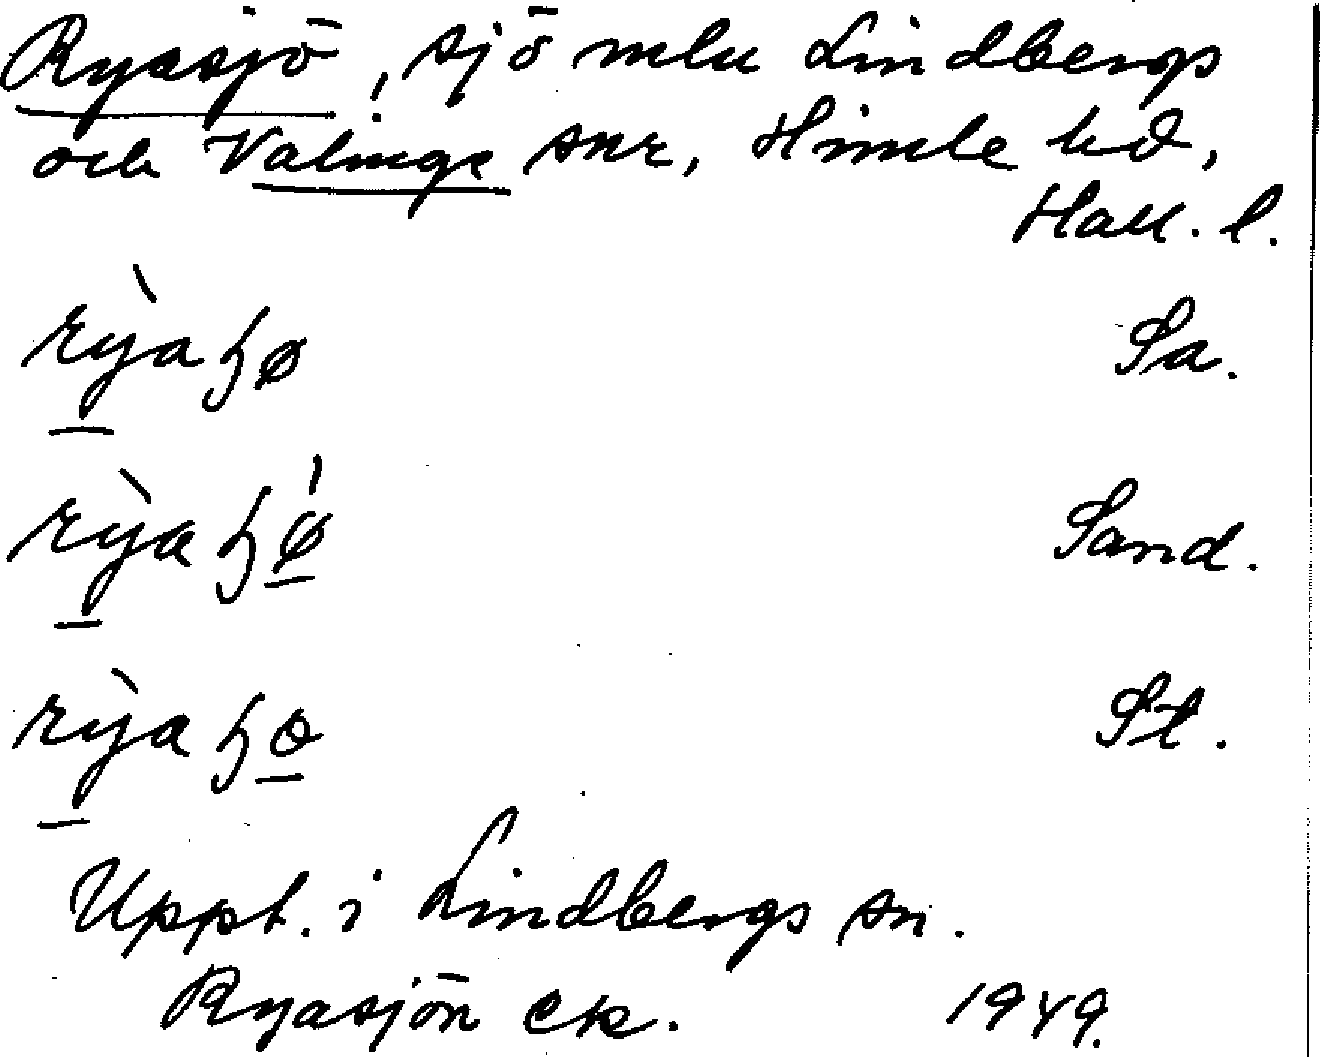 Ryasjö, sjö mlu Lindbergs
och Valinge snr, Himle hd,
Hall. l.
rỳa ɧø Sa.
rỳa ɧǿ Sand.
rỳa ɧo St.
Uppt. i Lindbergs sn.
Ryasjön ek. 1949.